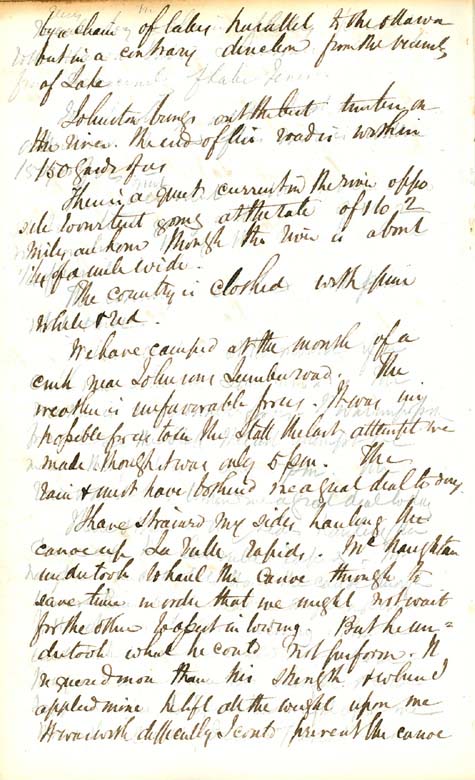 by a chain of lakes parallel to the Ottawa
but in a contrary direction from the vicinity
of Lake
Johnston brings out the best timber on
the river. The end of his road is within
150 yards of us
There is a great current in the river oppo
site to our tent going at the rate of 1 to 2
miles an hour though the river is about
of a mile wide.
The country is clothed with pine
white & red.
We have camped at the mouth of a
creek near Johnsons Lumber road. The
weather is unfavorable for us. It was im
possible for us to see the staff the last attempt we
made though it was only 5 pm. The
rain & mist have bothered me a great deal to day
I have strained my sides hauling the
canoe up La Valle rapids. Mc Naughtan
undertook to haul the canoe through to
save time in order that we might not wait
for the other to assist in towing. But he un=
dertook what he could not perform. It
required more than his strength & when I
applied mine he left all the weight upon me
It was with difficulty I could prevent the canoe